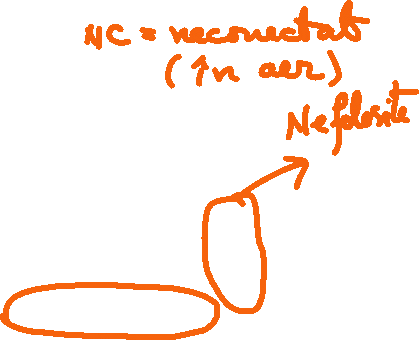 NC = neconectat
(în aer)
Nefolosite